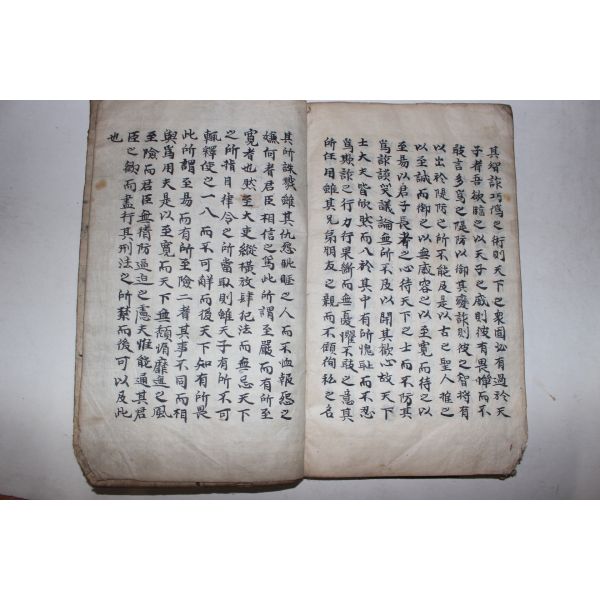 其智詐巧僞之術則天下之衆固必有過於天
子者吾欲臨之以天子之威則彼有畏憚而不
敢言多爲之隄防以御其變詐則彼之智將有
以出於隄防之所不能及是以古之聖人推之
以至誠而御之以無威容之以至寬而待之以
至易以君子長者之心待天下之士而不防其
爲詐談笑議論無所不及以開其歡心故天下
士大夫皆欣然而入於其中有所愧恥而不忍
爲欺詐之行力行果斷而無憂懼不敢之意其
所任用雖其兄弟朋友之親而不顧徇私之名
其所誅戮雖其仇怨睚眦之人而不恤報怨之
嫌何者君臣相信之篤此所謂至嚴而有所至
寬者也然至大吏縱橫放肆犯法而無忌天下
之所指目律令之所當取則雖天子有所不可
輒釋使之一入而不可解而後天下知有所畏
此所謂至易而有所至險二者其事不同而相
與爲用夫是以至寬而天下無頹惰靡迤之風
至險而君臣無猜防逼迫之慮夫惟能通其君
臣之歡而盡行其刑法之所禁而後可以及此
也